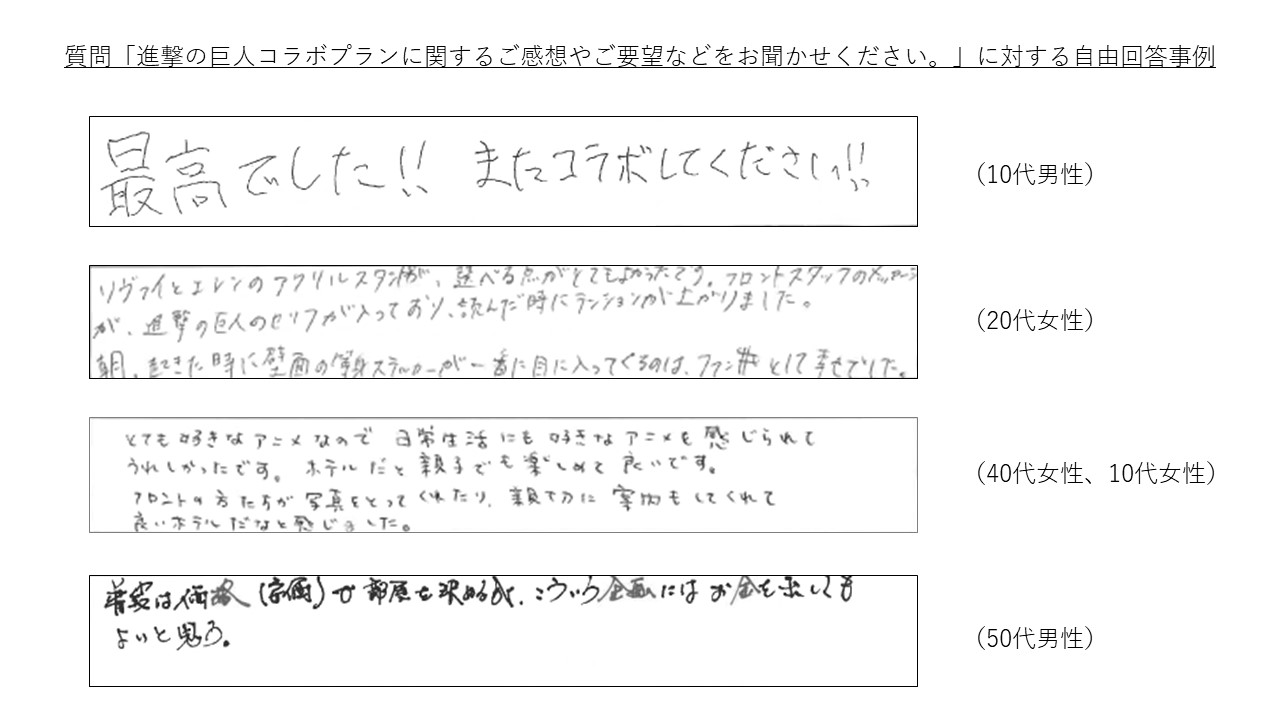 質問「進撃の巨人コラボプランに関するご感想やご要望などをお聞かせください。」に対する自由回答事例
最高でした!! またコラボしてください!!
（10代男性）
リヴァイとエレンのアクリルスタンドが、選べる点がとてもよかったです。フロントスタッフのメッセージ
が、進撃の巨人のセリフが入っており、読んだ時にテンションが上がりました。
朝、起きた時に壁面の等身ステッカーが一番に目に入ってくるのは、ファンとして幸せでした。
（20代女性）
とても好きなアニメなので 日常生活にも好きなアニメを感じられて
うれしかったです。ホテルだと親子でも楽しめて良いです。
フロントの方たちが写真をとってくれたり、親切に案内もしてくれて
良いホテルだなと感じました。
（40代女性、10代女性）
普段は価格（定価）で部屋を決めるが、こういう企画にはお金を出しても
よいと思う。
（50代男性）